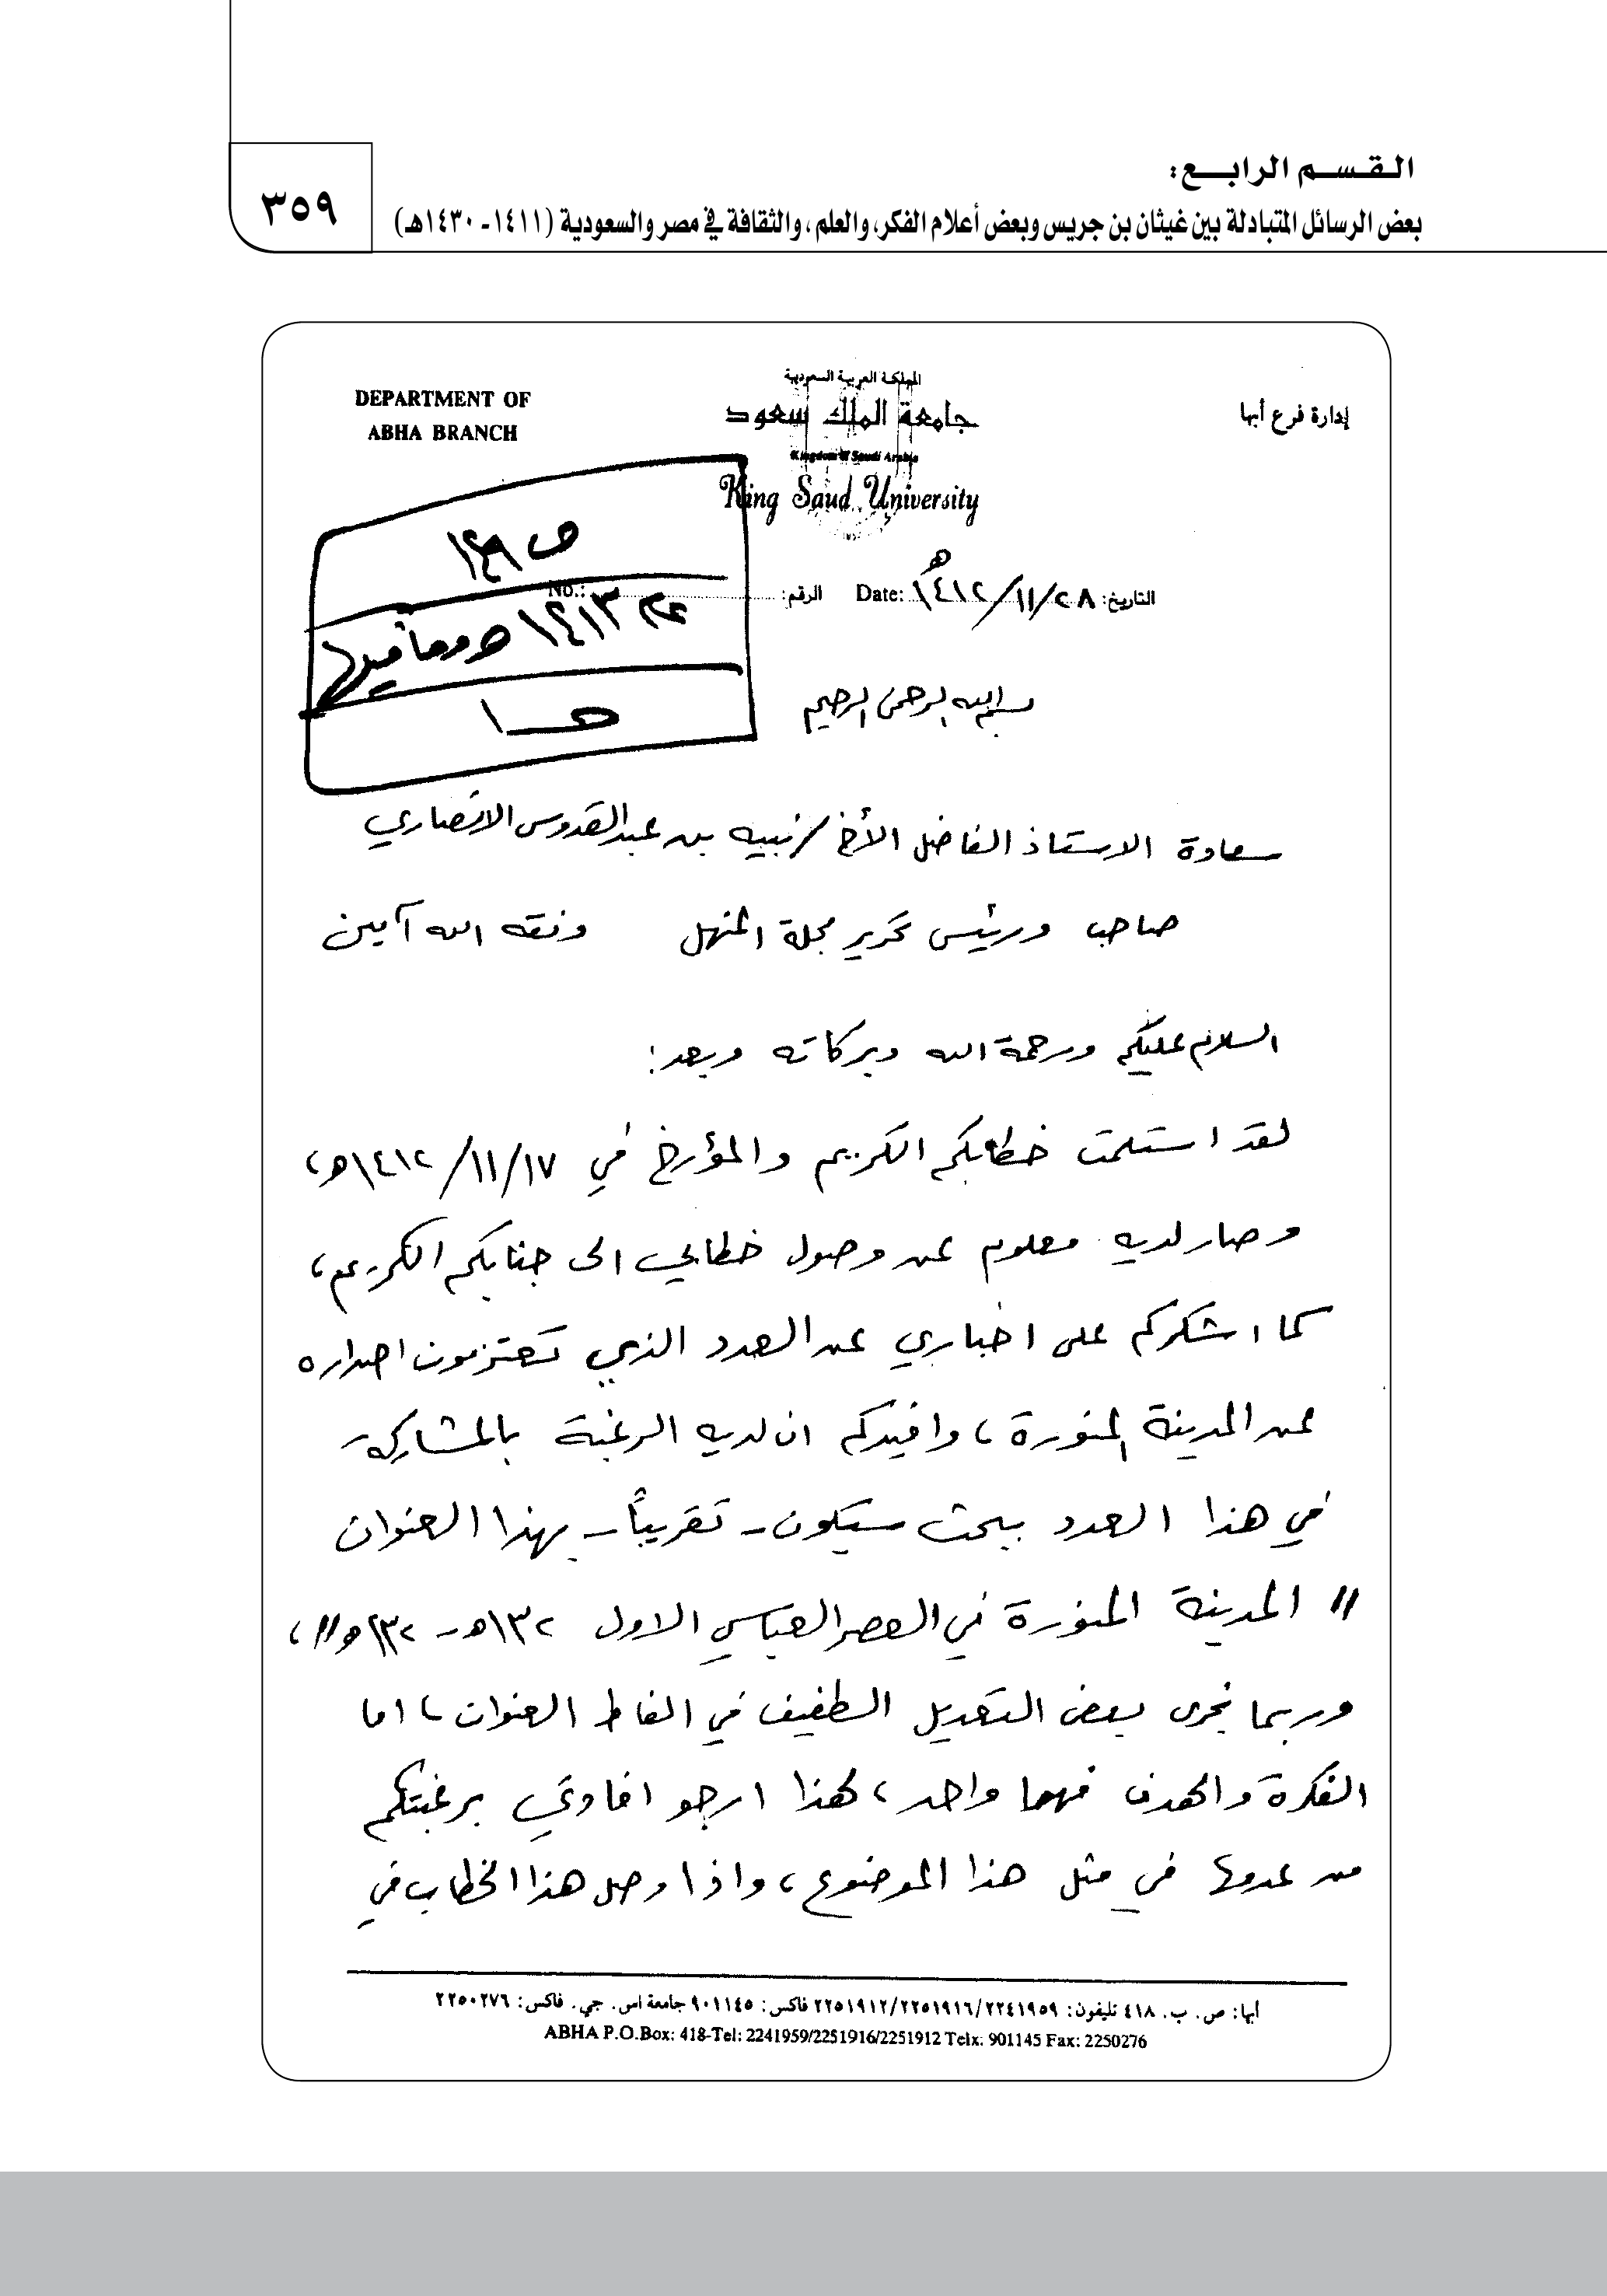 القسم الرابع:
بعض الرسائل المتبادلة بين غيثان بن جريس وبعض أعلام الفكر، والعلم، والثقافة في مصر والسعودية (١٤١١ـ ١٤٣٠هـ)
٣٥٩
إدارة فرع أبها
المملكة العربية السعودية
جامعة الملك سعود
Kingdom of Saudi Arabia
King Saud University
DEPARTMENT OF
ABHA BRANCH
التاريخ: ٢٨/١١/١٤١٢هـ Date: الرقم: No.:
ص
١٤١٣ هـ وما فيها
هـ ١
بسم الله الرحمن الرحيم
سعادة الاستاذ الفاضل الأخ / نبيه بن عبدالقدوس الانصاري
صاحب ورئيس تحرير مجلة المنهل وفقه الله آمين
السلام عليكم ورحمة الله وبركاته وبعد:
لقد استلمت خطابكم الكريم والمؤرخ في ١٧/١١/١٤١٢هـ،
وصار لديه معلوم عن وصول خطابي الى جنابكم الكريم،
كما اشكركم على اخباري عن العدد الذي تعتزمون اصداره
عن المدينة المنورة، وافيدكم ان لديه الرغبة بالمشاركة
في هذا العدد ببحث سيكون - تقريباً - بهذا العنوان
" المدينة المنورة في العصر العباسي الاول ١٣٢هـ - ٢٣٢هـ "،
وربما نجرى بعض التعديل الطفيف في الفاظ العنوان، اما
الفكرة والهدف فهما واحد، لهذا ارجو افادتي برغبتكم
من عدمها في مثل هذا الموضوع، واذا وصل هذا الخطاب في
أبها: ص. ب. ٤١٨ تليفون: ٢٢٤١٩٥٩/٢٢٥١٩١٦/٢٢٥١٩١٢ فاكس: ٩٠١١٤٥ جامعة اس. جي. فاكس: ٢٢٥٠٢٧٦
ABHA P.O.Box: 418-Tel: 2241959/2251916/2251912 Telx: 901145 Fax: 2250276